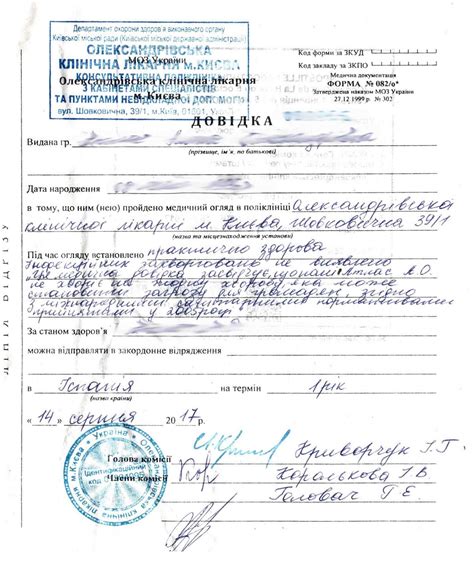 Департамент охорони здоров'я виконавчого органу
Київської міської ради (Київської міської державної адміністрації)
ОЛЕКСАНДРІВСЬКА
КЛІНІЧНА ЛІКАРНЯ М.КИЄВА
КОНСУЛЬТАТИВНА ПОЛІКЛІНІКА
З КАБІНЕТАМИ СПЕЦІАЛІСТІВ
ТА ПУНКТАМИ НЕВІДКЛАДНОЇ ДОПОМОГИ
вул. Шовковична, 39/1, м.Київ, 01601, Україна
МОЗ України
Олександрівська клінічна лікарня
м.Києва
Код форми за ЗКУД
Код закладу за ЗКПО
Медична документація
ФОРМА № 082/о
Затверджена наказом МОЗ України
27.12 1999 р. № 302
ДОВІДКА
Видана гр.
(прізвище, ім'я, по батькові)
Дата народження
в тому, що ним (нею) пройдено медичний огляд в поліклініці Олександрівська
клінічної лікарні м. Києва, Шовковична 39/1
(назва та місцезнаходження установи)
Під час огляду встановлено практично здорова
Інфекційних захворювань не виявлено
не хворіє
хворобу, яка може
становити загрозу для громадян, згідно
з міжнародними санітарними нормативами
прийнятими у 2005 році
За станом здоров'я
можна відправляти в закордонне відрядження
в Іспанія на термін 1 рік
(назва країни)
« 14 » серпня 2017 р.
Голова комісії Криворчук І.Г.
Члени комісії Коралькова І В
Головач Г Е
Україна
м.Києва
Олександрівська клінічна лікарня
Ідентифікаційний
код
ЛІНІЯ ВІДРІЗУ